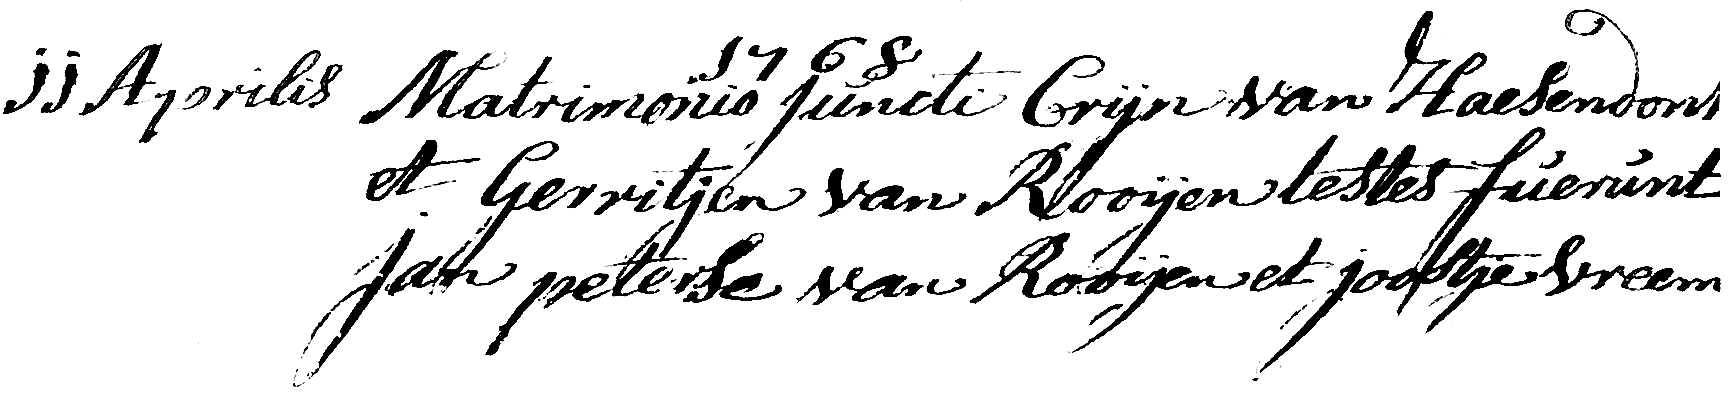 1768
jj Aprilis Matrimonio juncti Crijn van Haesendonk
et Gerritjen van Rooijen testes fuerunt
jan peterse van Rooijen et joostje vreem